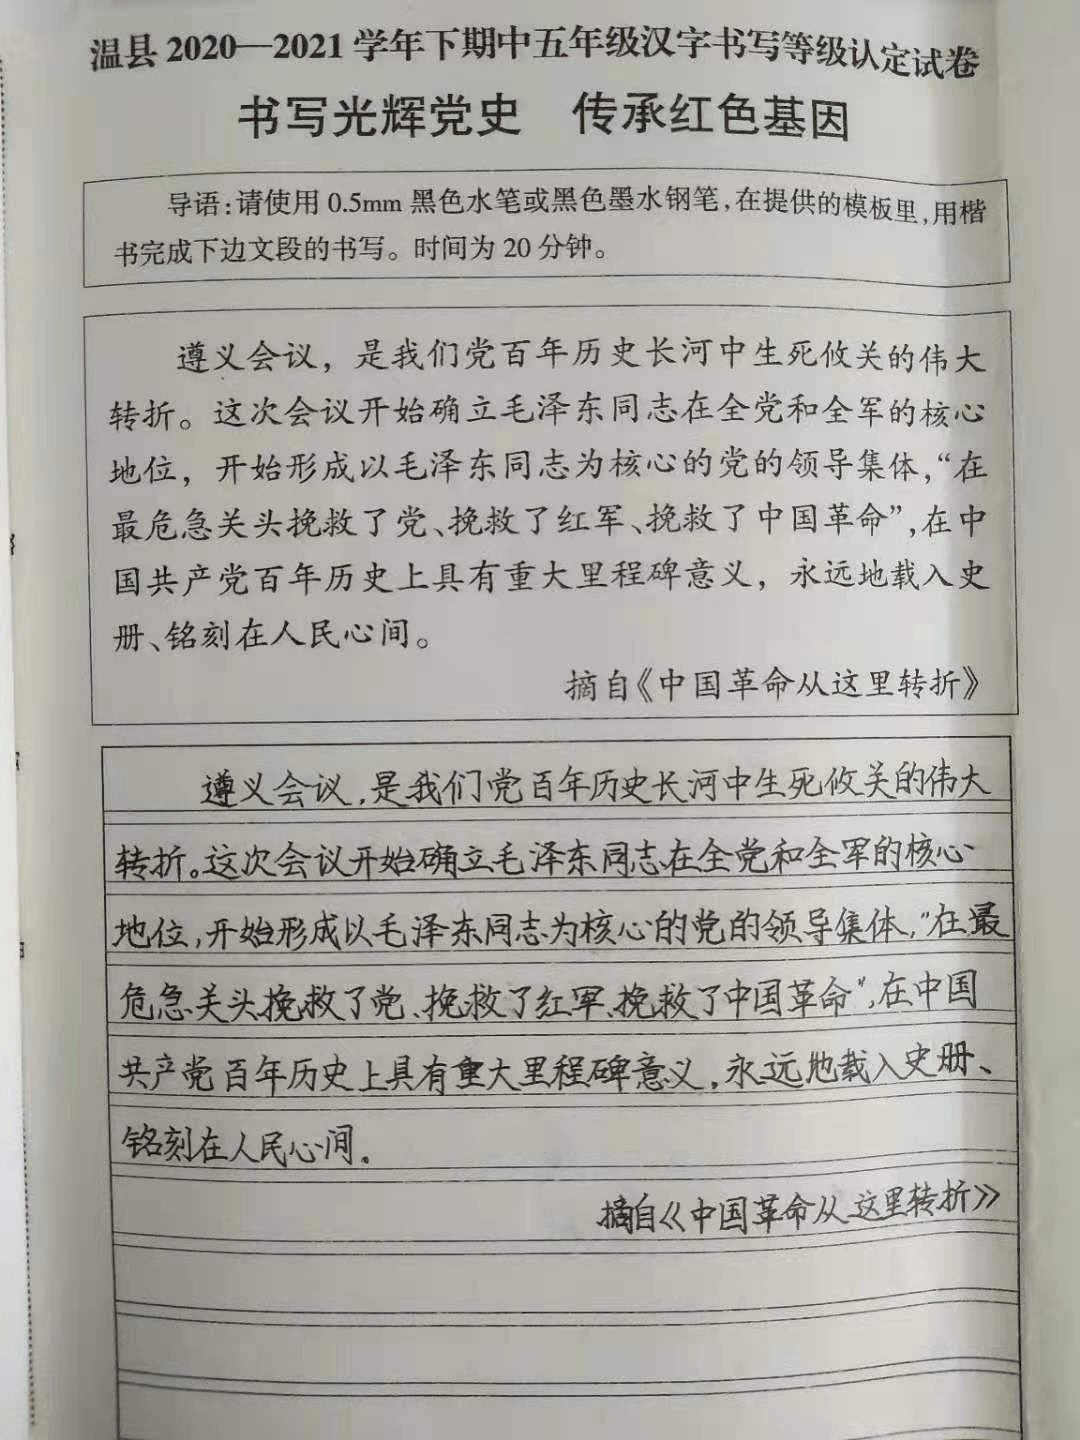 温县2020—2021学年下期中五年级汉字书写等级认定试卷
书写光辉党史 传承红色基因
导语:请使用0.5mm黑色水笔或黑色墨水钢笔,在提供的模板里,用楷
书完成下边文段的书写。时间为20分钟。
遵义会议，是我们党百年历史长河中生死攸关的伟大
转折。这次会议开始确立毛泽东同志在全党和全军的核心
地位，开始形成以毛泽东同志为核心的党的领导集体,“在
最危急关头挽救了党、挽救了红军、挽救了中国革命”,在中
国共产党百年历史上具有重大里程碑意义，永远地载入史
册、铭刻在人民心间。
摘自《中国革命从这里转折》
遵义会议,是我们党百年历史长河中生死攸关的伟大
转折。这次会议开始确立毛泽东同志在全党和全军的核心
地位,开始形成以毛泽东同志为核心的党的领导集体,“在最
危急关头挽救了党、挽救了红军、挽救了中国革命”,在中国
共产党百年历史上具有重大里程碑意义,永远地载入史册、
铭刻在人民心间。
摘自《中国革命从这里转折》